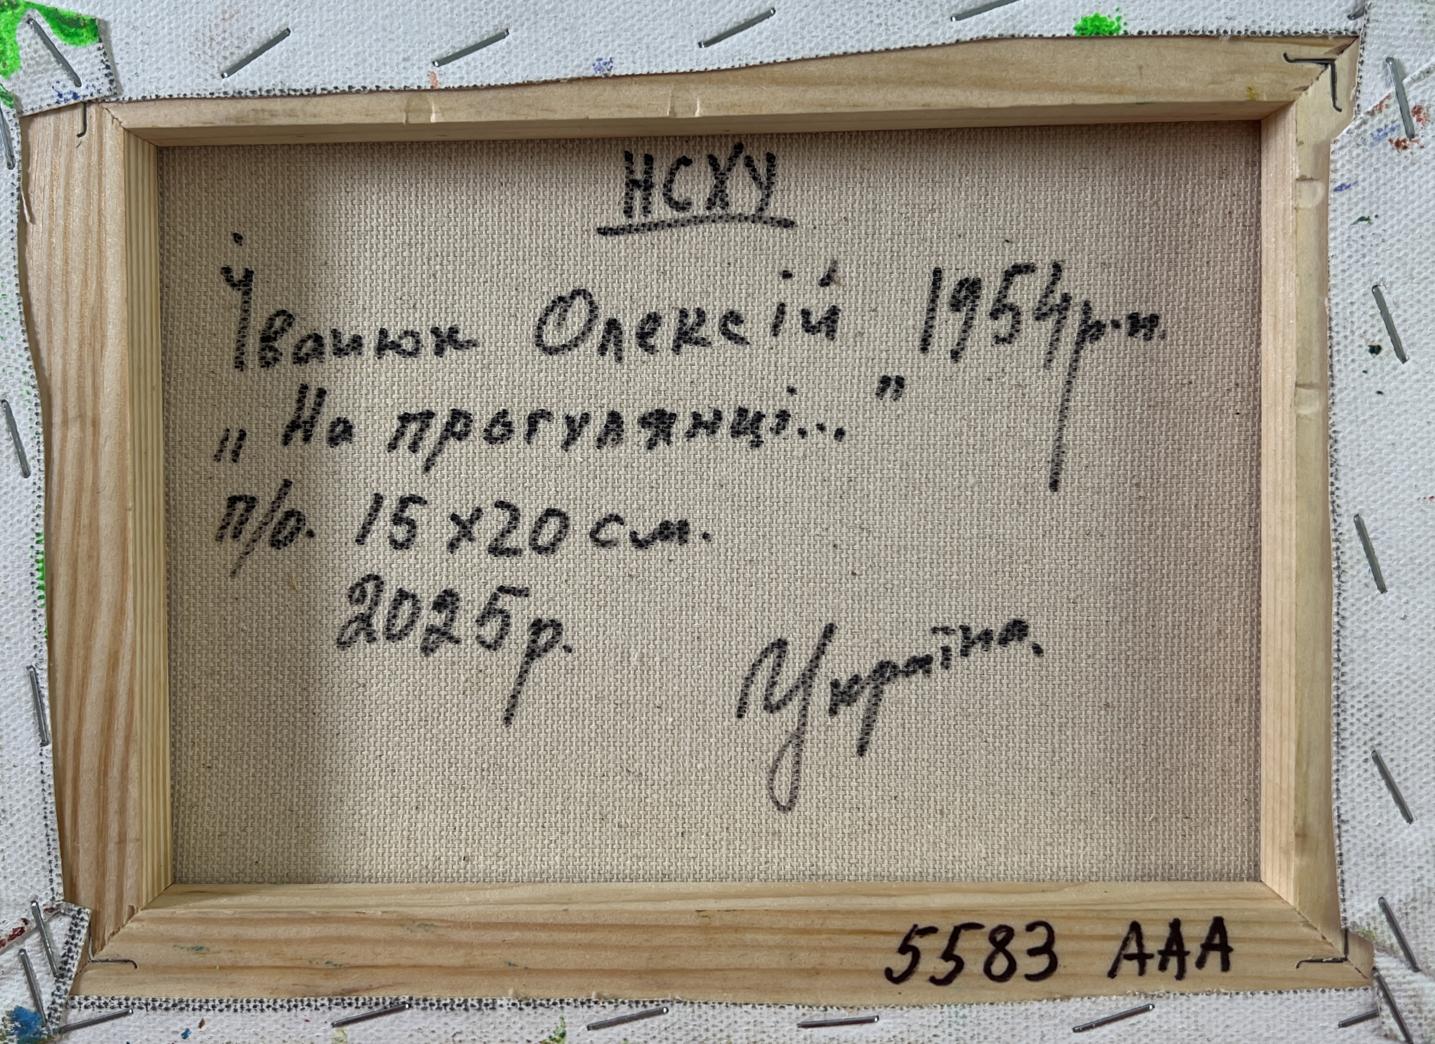 НСХУ
Іванюк Олексій 1954 р.н.
„На прогулянці..."
п/о. 15х20 см.
2025р.
Україна.
5583 ААА